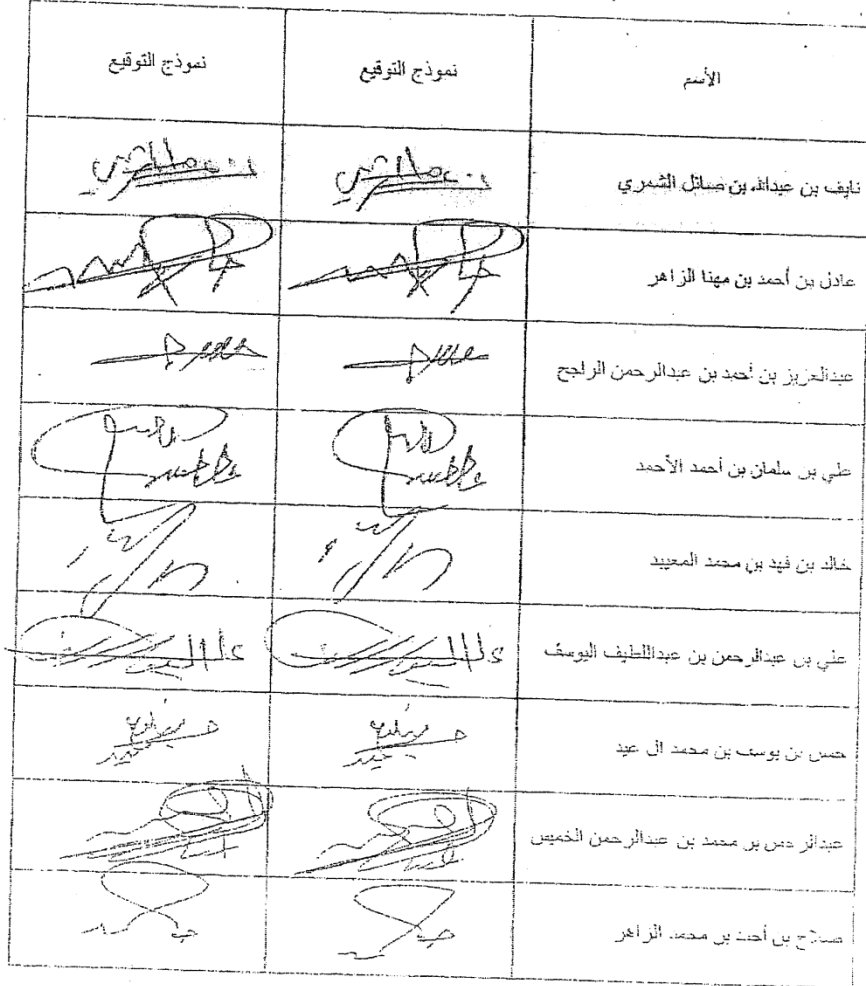 الأسم نموذج التوقيع نموذج التوقيع
نايف بن عبدالله بن صائل الشمري
عادل بن أحمد بن مهنا الزاهر
عبدالعزيز بن أحمد بن عبدالرحمن الراجح
علي بن سلمان بن أحمد الأحمد
خالد بن فهد بن محمد المعيبد
علي بن عبدالرحمن بن عبداللطيف اليوسف
حسن بن يوسف بن محمد ال عيد
عبدالرحمن بن محمد بن عبدالرحمن الخميس
صلاح بن أحمد بن محمد الزاهر